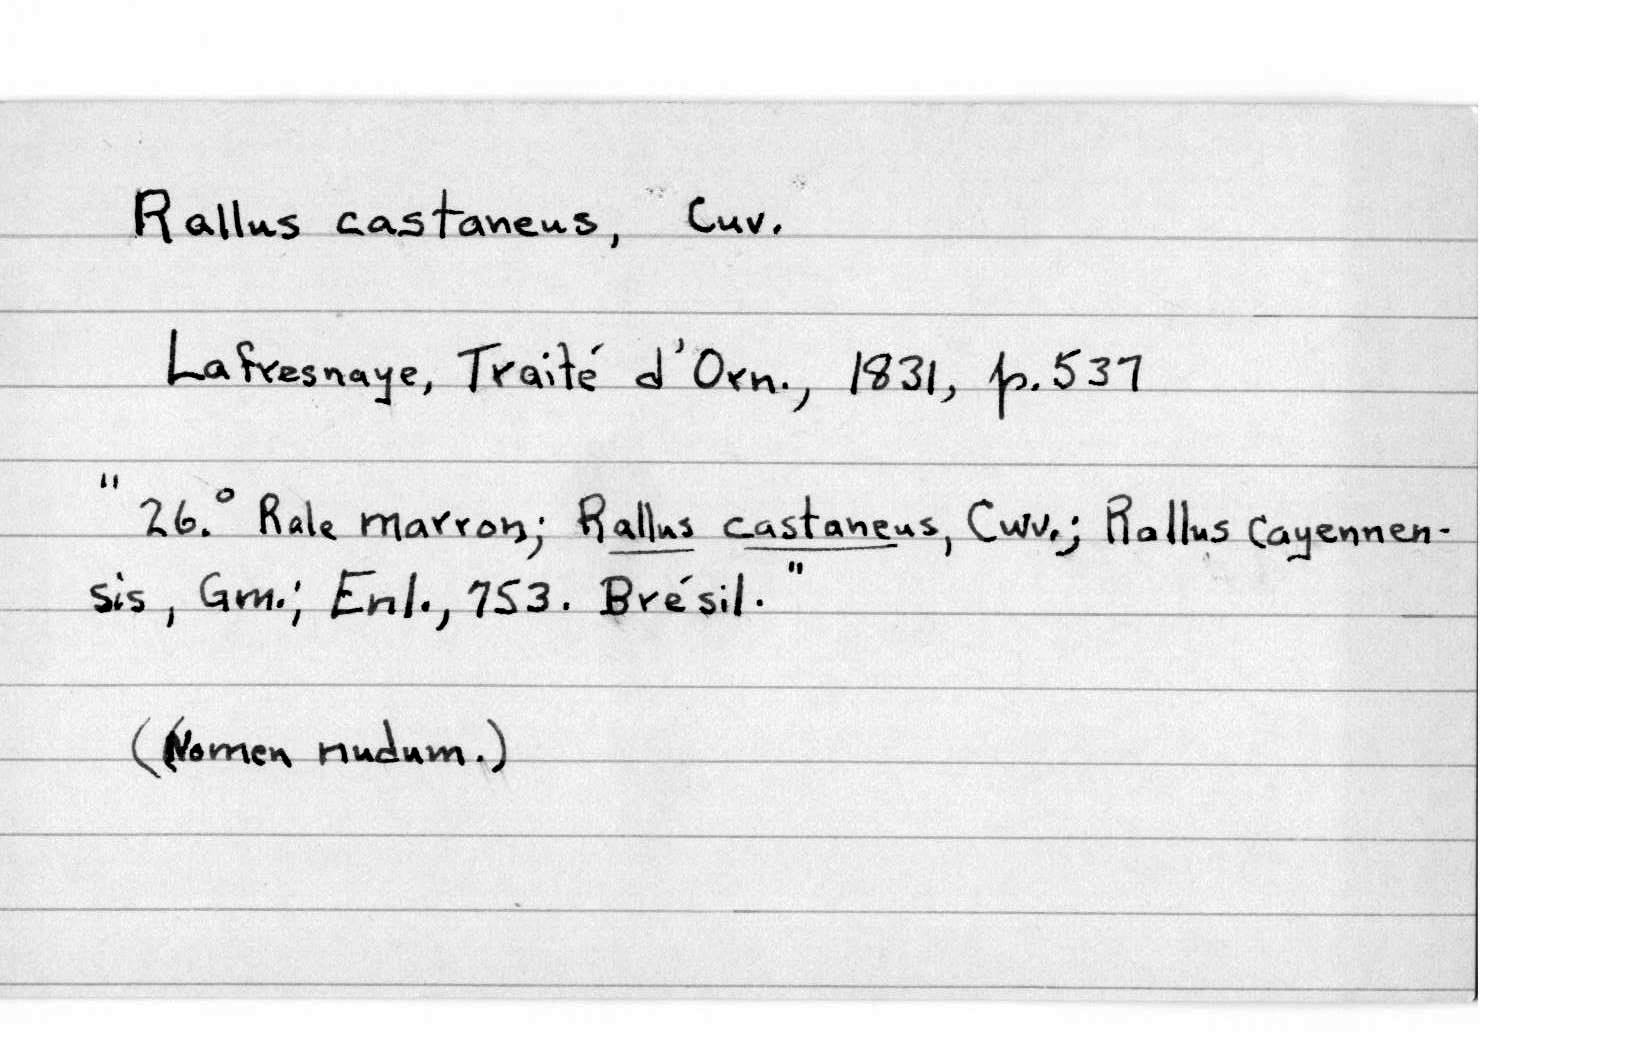 Rallus castaneus, Cuv.
Lafresnaye, Traité d'Orn., 1831, p. 537
"26.° Rale marron; Rallus castaneus, Cuv.; Rallus Cayennen-
sis, Gm.; Enl., 753. Brésil."
(Nomen nudum.)